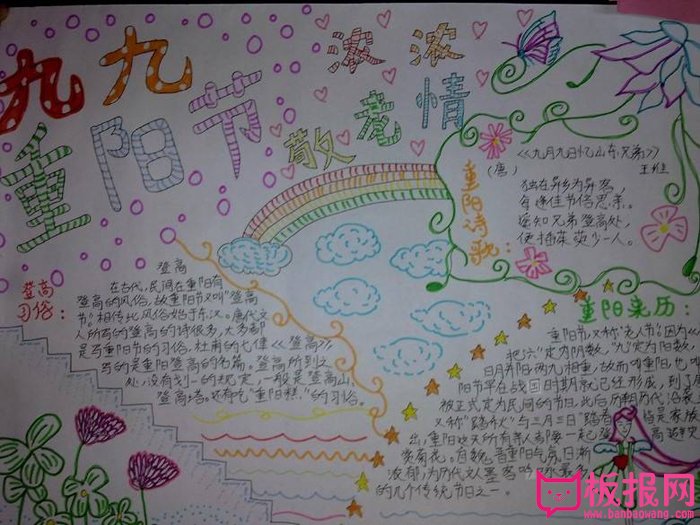 九九
重阳节
浓浓
敬老情
重阳诗歌：
《九月九日忆山东兄弟》
（唐） 王维
独在异乡为异客，
每逢佳节倍思亲。
遥知兄弟登高处，
便插茱萸少一人。
登高习俗：
登高
在古代，民间在重阳有
登高的风俗，故重阳节又叫“登高
节”。相传此风俗始于东汉。唐代文
人所写的登高的诗很多，大多都
是写重阳节的习俗，杜甫的七律《登高》
写的是重阳登高的名篇。登高所到之
处，没有划一的规定，一般是登高山，
登高塔。还有吃“重阳糕”的习俗。
重阳来历：
重阳节，又称“老人节”。因为
把“六”定为阴数，“九”定为阳数，
日月并阳，两九相重，故而叫重阳，也
阳节早在战国时期就已经形成，到了
被正式定为民间的节日，此后历朝历代沿袭
又称“踏秋”与三月三日“踏春” 皆是家族
出，重阳这天所有亲人都要一起登高
赏菊花。自魏 晋重阳气氛日渐
浓郁，为历代文人墨客吟咏最多
的几个传统节日之一。
板报网
www.banbaowang.com